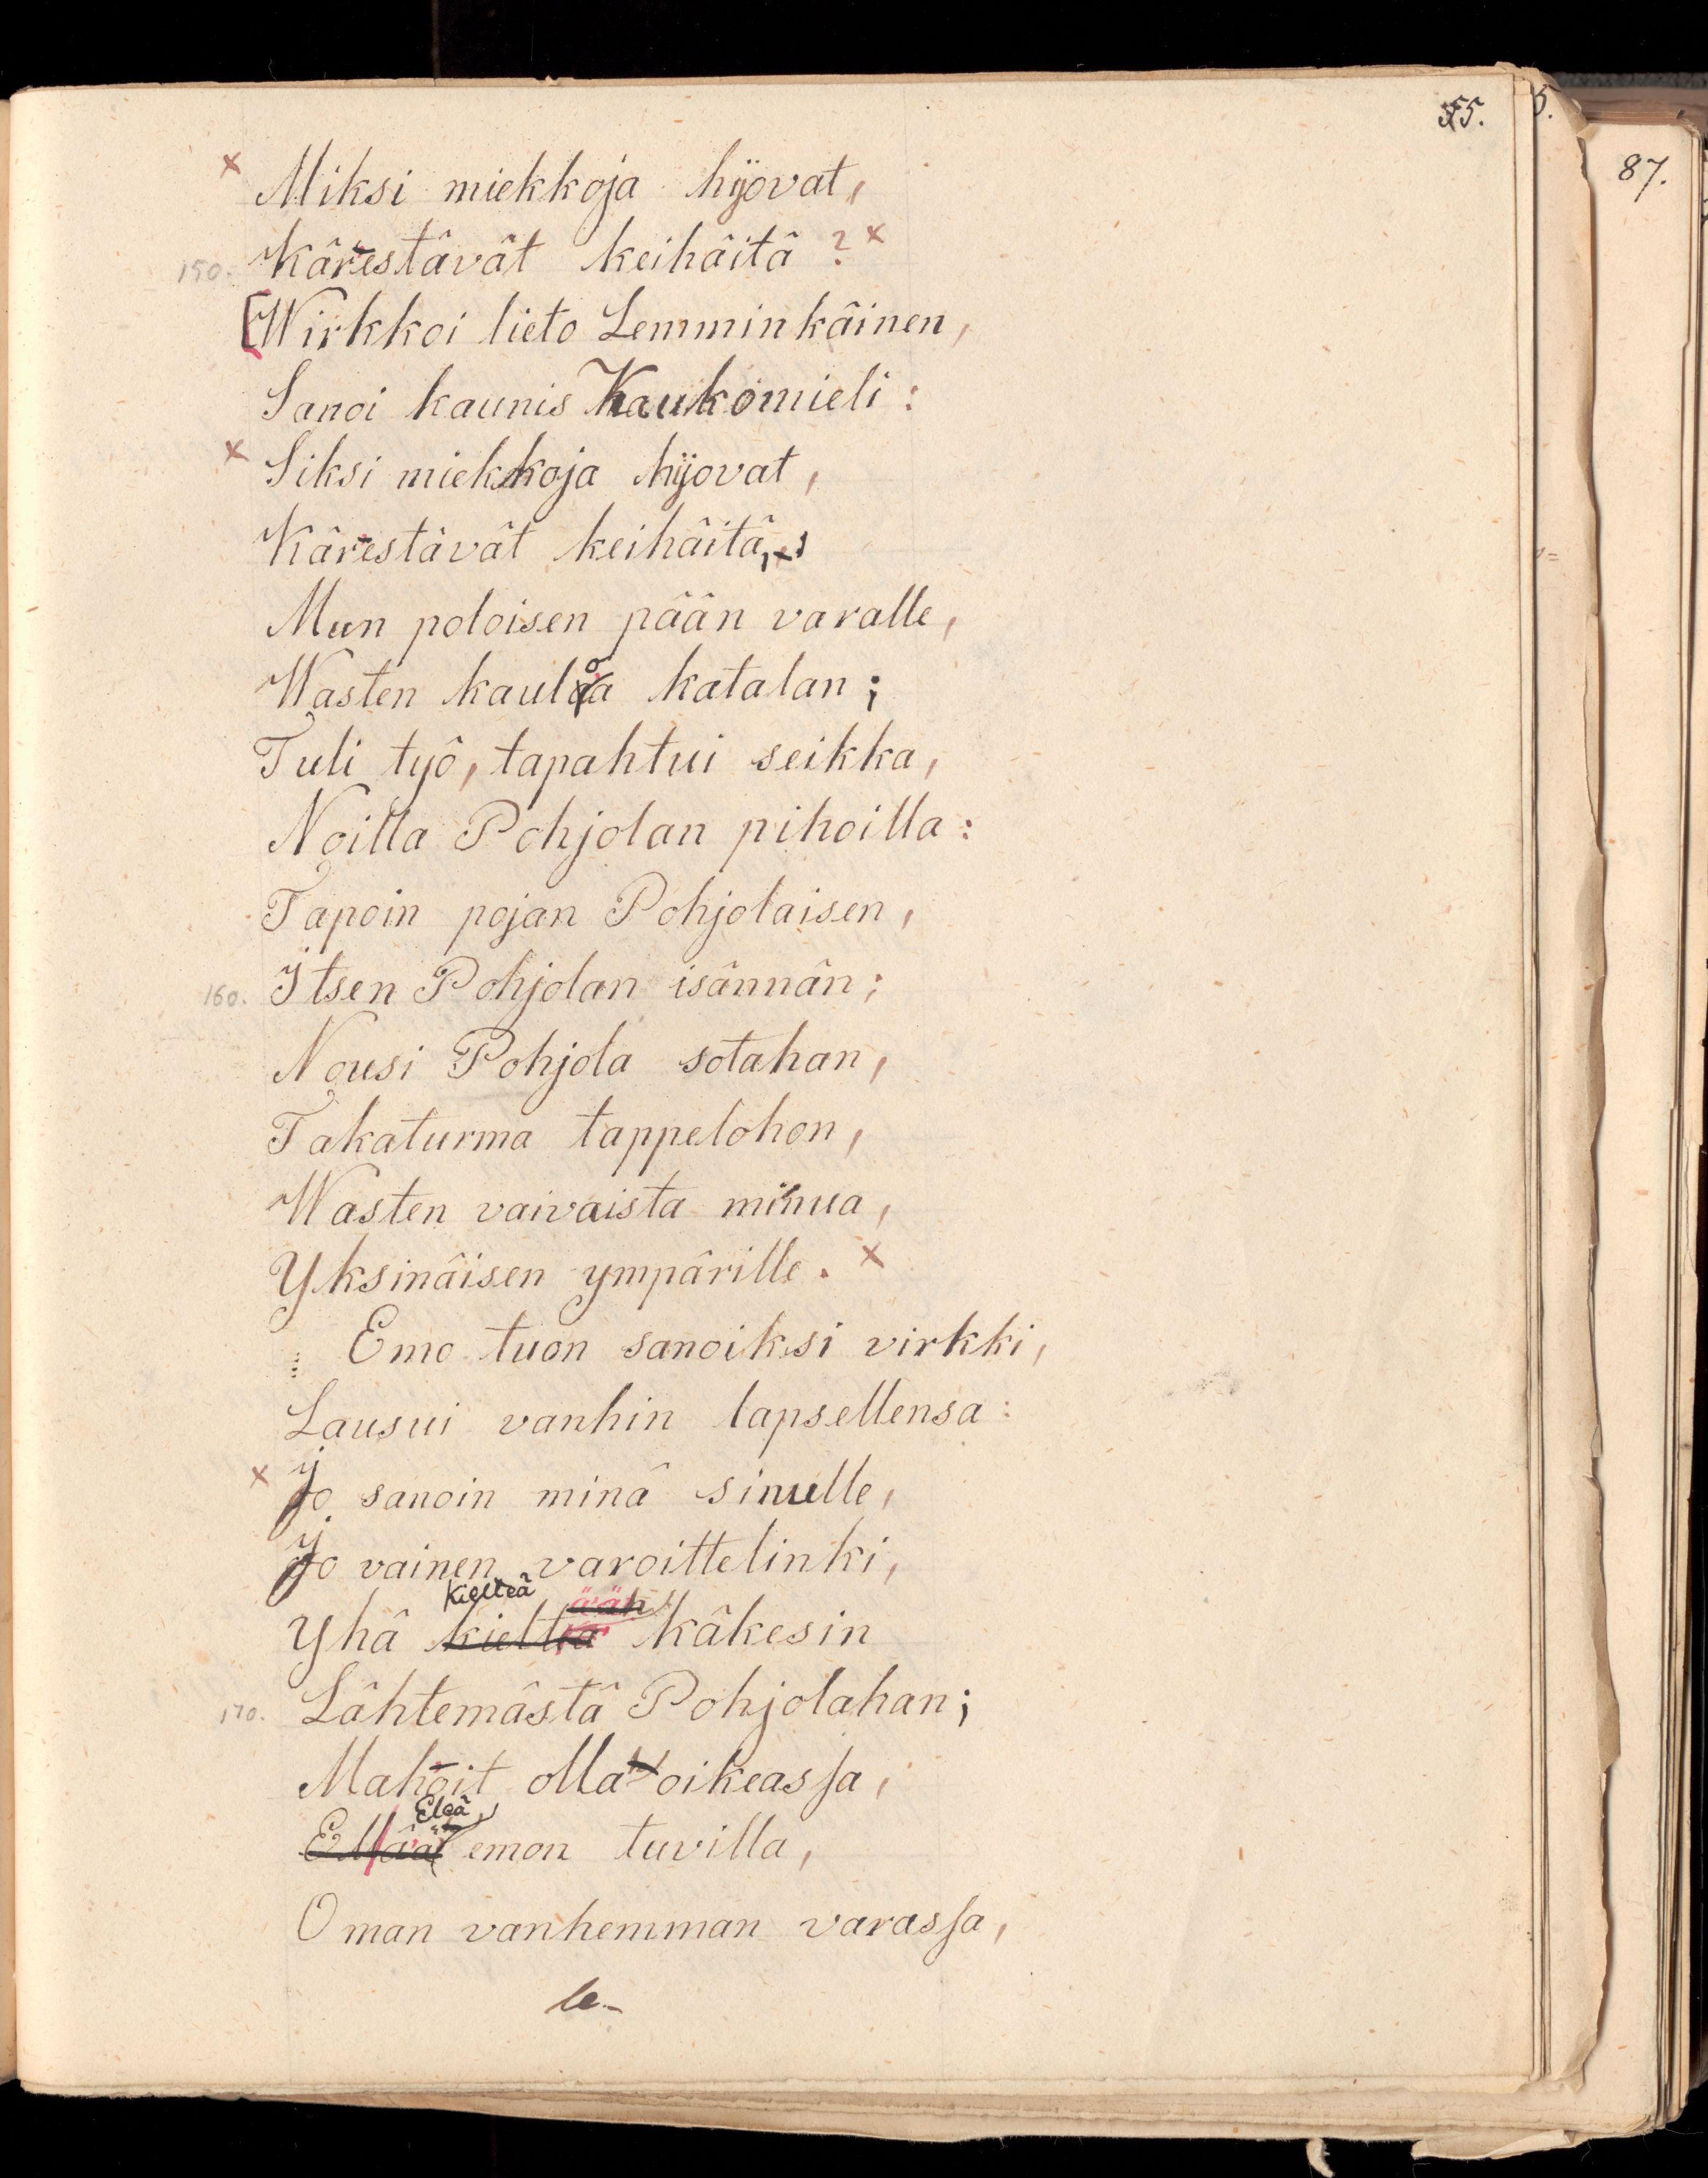 55.
5.
87.
× Miksi miekkoja hijovat,
150. Kärestävät keihäitä ? ×
[Wirkkoi lieto Lemminkäinen,
Sanoi kaunis Kaukomieli :
× Siksi miekkoja hijovat,
Kärestävät keihäitä,
Mun poloisen pään varalle,
Wasten kauloa katalan ;
Tuli työ, tapahtui seikka,
Noilla Pohjolan pihoilla :
Tapoin pojan Pohjolaisen,
160. Itsen Pohjolan isännän ;
Nousi Pohjola sotahan,
Takaturma tappelohon,
Wasten vaivaista minua,
Yksinäisen ympärille. ×
Emo tuon sanoiksi virkki,
Lausui vanhin lapsellensa :
× Jo sanoin minä sinulle,
Jo vainen varoittelinki,
Kielteä ään
Yhä kieltiä käkesin
170. Lähtemästä Pohjolahan ;
Mahoit olla oikeassa,
Eleä
Ellää emon tuvilla,
Oman vanhemman varassa,
le-